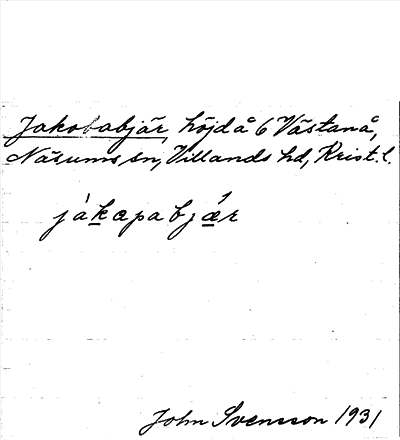 Jakobabjär, höjd å 6 Västanå,
Näsums sn, Villands hd, Krist. l.
jákapabjǽr
John Svensson 1931